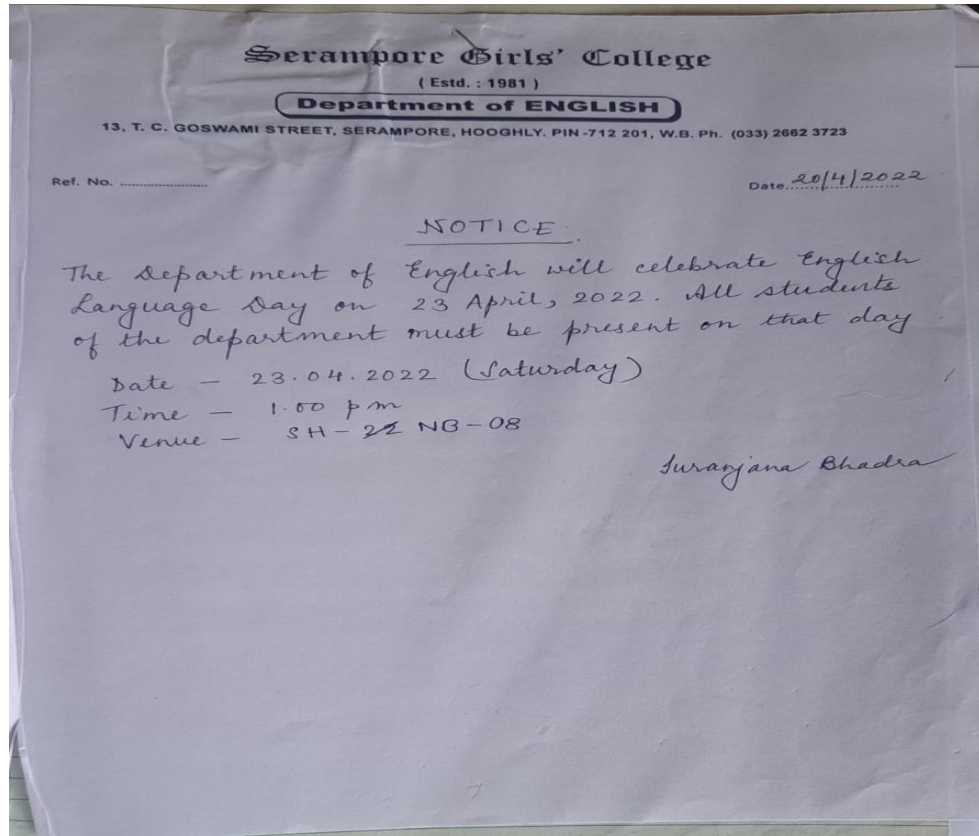 Serampore Girls' College
( Estd. : 1981 )
Department of ENGLISH
13, T. C. GOSWAMI STREET, SERAMPORE, HOOGHLY. PIN -712 201, W.B. Ph. (033) 2662 3723
Ref. No. ........................ Date 20/4/2022
NOTICE.
The Department of English will celebrate English
Language Day on 23 April, 2022. All students
of the department must be present on that day
Date - 23.04.2022 (Saturday)
Time - 1.00 pm
Venue - SH - 22 NB - 08
Suranjana Bhadra